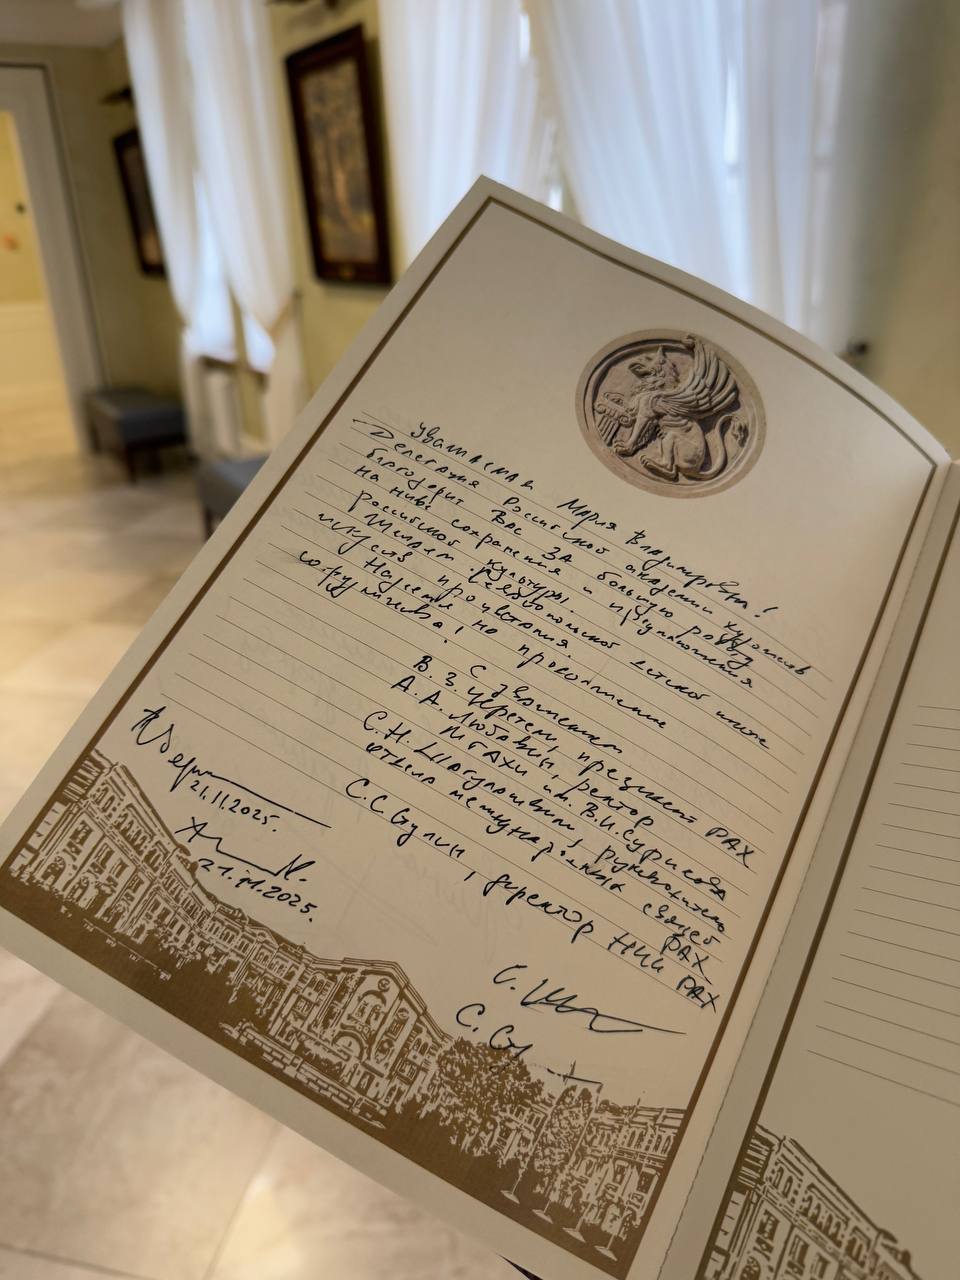 Уважаемая Мария Владимировна!
Делегация Российской академии художеств
благодарит Вас за большую работу
на ниве сохранения и приумножения
Российской культуры.
Желаем Севастопольской детской школе
искусств процветания.
Надеемся на продолжение
сотрудничества!
С уважением
В. З. Церетели, президент РАХ
А. А. Любавин, ректор
МГАХИ им. В.И. Сурикова
С. Н. Шагулашвили, руководитель
отдела международных связей
РАХ
С. С. Ступин, директор НИИ РАХ
21.11.2025.
21.11.2025.